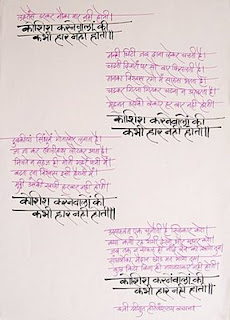 लहरोंसे डरकर नौका पार नहीं होती।
कोशिश करनेवालों की
कभी हार नहीं होती॥
नन्ही चिंटी जब दाना लेकर चलती है।
चढती दिवारों पर सौ बार फिसलती है।
मनका विश्वास रगों में साहस भरता है।
चढकर गिरना गिरकर चढना न अखरता है।
मेहनत उसकी बेकार हर बार नहीं होती।
कोशिश करनेवालों की
कभी हार नहीं होती॥
डुबकियाँ सिंधुमें गोताखोर लगाता है।
जा जा कर खालीहाथ लौटकर आता है।
मिलते न सहज ही मोती गहरे पानी में।
बढता दूना विश्वास इसी हैरानी में।
मुठ्ठी उसकी खाली हरबार नहीं होती।
कोशिश करनेवालों की
कभी हार नहीं होती॥
असफलता एक चुनौती है स्विकार करो।
क्या कमी रह गयी देखो और सुधार करो।
जब तक न सफल हो नींद चैन को त्यागो तुम।
संघर्षोंका मैदान छोड मत भागो तुम।
कुछ किये बिना ही जयजयकार नहीं होती।
कोशिश करनेवालों की
कभी हार नहीं होती॥
कवी श्रीयुत हरिवंशराय बच्चन